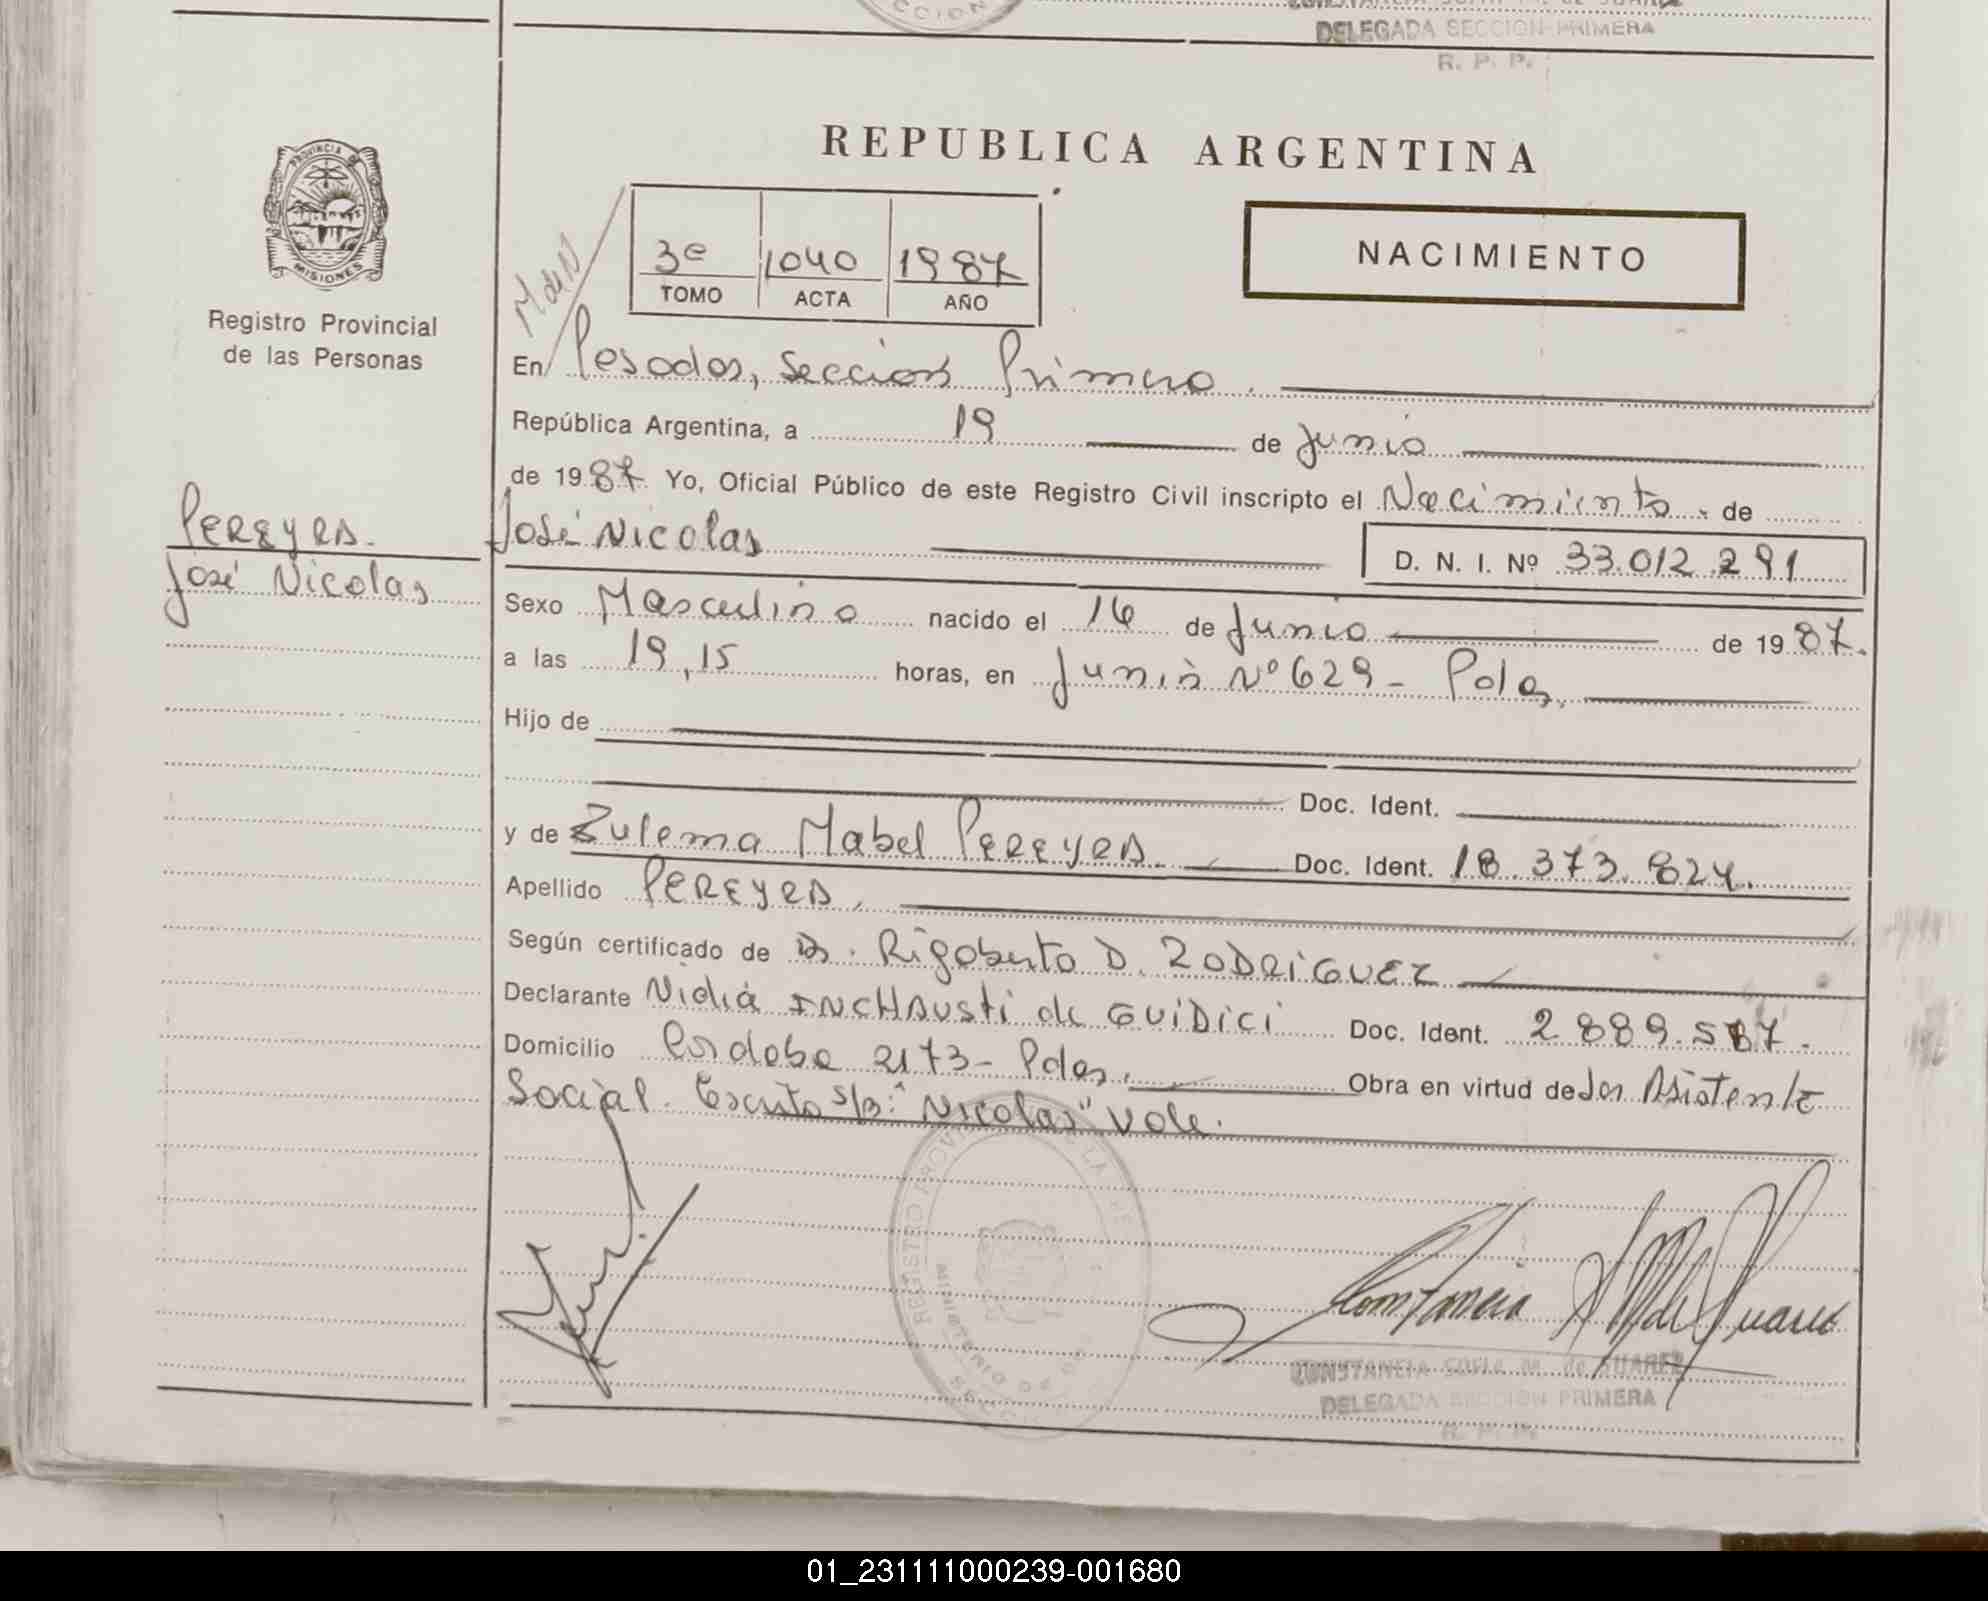 DELEGADA SECCION PRIMERA
R. P. P.
PROVINCIA DE
MISIONES
Registro Provincial
de las Personas
PEREYRA.
José Nicolas
REPUBLICA ARGENTINA
3e 1040 1987
TOMO ACTA AÑO
NACIMIENTO
M de N
En Posadas, Sección Primera.
República Argentina, a 19 de Junio
de 1987. Yo, Oficial Público de este Registro Civil inscripto el Nacimiento de
José Nicolas
D. N. I. Nº 33.012.291
Sexo Masculino nacido el 16 de Junio de 1987.
a las 19,15 horas, en Junín Nº 629 - Pdas.
Hijo de
Doc. Ident.
y de Zulema Mabel PEREYRA. Doc. Ident. 18.373.824.
Apellido PEREYRA.
Según certificado de Dr. Rigoberto D. RODRIGUEZ
Declarante Nidia INCHAUSTI de GUIDICI Doc. Ident. 2889.517.
Domicilio Córdoba 2173 - Pdas. Obra en virtud de ser Asistente
Social. Escrito s/b: "Nicolas" Vale.
REGISTRO PROVI LA PE
MINISTERIO DE GO
SECCIO
Constancia S M de Suarez
CONSTANCIA SOFIA M. de SUAREZ
DELEGADA SECCION PRIMERA
R. P. P.
01_231111000239-001680